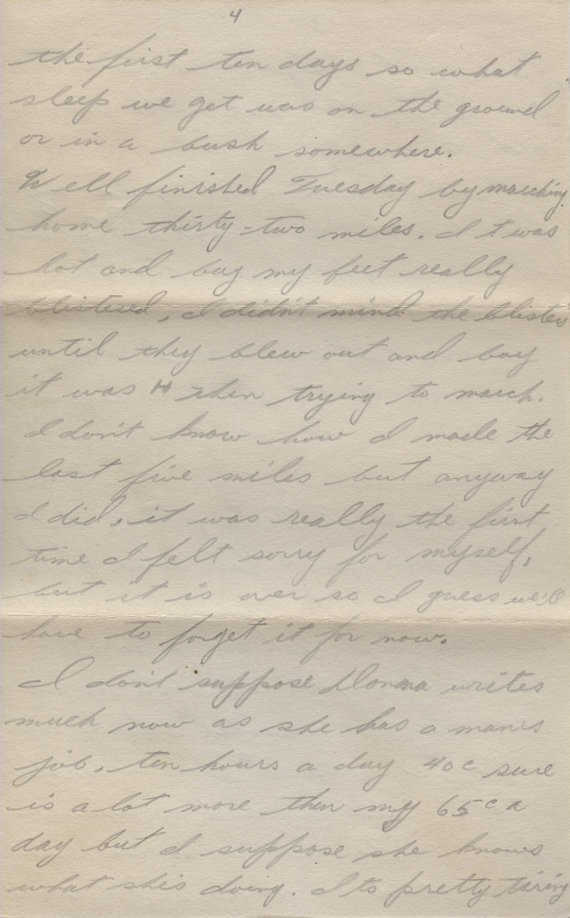 4
the first ten days so what
sleep we get was on the ground
or in a bush somewhere.
Well finished Tuesday by marching
home thirty-two miles. It was
hot and boy my feet really
blistered, I didn't mind the blisters
until they blew out and boy
it was H then trying to march.
I don't know how I made the
last five miles but anyway
I did, it was really the first
time I felt sorry for myself,
but it is over so I guess we'll
have to forget it for now.
I don't suppose Donna writes
much now as she has a man's
job, ten hours a day 40c sure
is a lot more then my 65c a
day but I suppose she knows
what shes doing. Its pretty tiring